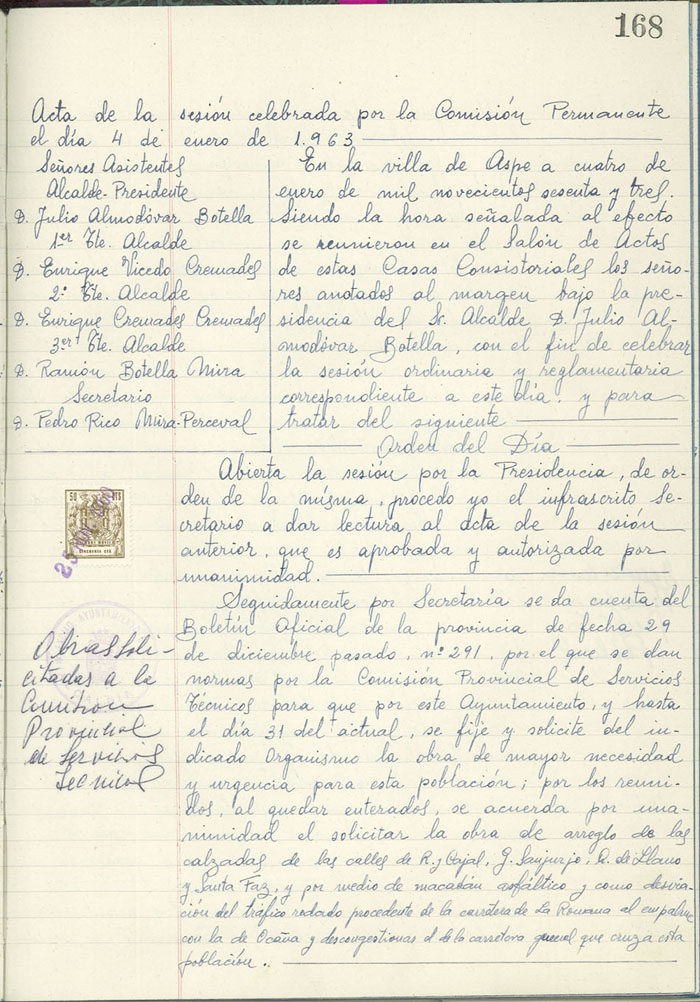 168
Acta de la sesión celebrada por la Comisión Permanente
el día 4 de enero de 1.963
Señores Asistentes
Alcalde-Presidente
D. Julio Almodóvar Botella
1er Tte. Alcalde
D. Enrique Vicedo Cremades
2º Tte. Alcalde
D. Enrique Cremades Cremades
3er Tte. Alcalde
D. Ramón Botella Mira
Secretario
D. Pedro Rico Mira-Perceval
En la villa de Aspe a cuatro de
enero de mil novecientos sesenta y tres.
Siendo la hora señalada al efecto
se reunieron en el Salón de Actos
de estas Casas Consistoriales los seño-
res anotados al margen bajo la pre-
sidencia del Sr. Alcalde D. Julio Al-
modóvar Botella, con el fin de celebrar
la sesión ordinaria y reglamentaria
correspondiente a este día, y para
tratar del siguiente
Orden del Día
Abierta la sesión por la Presidencia, de or-
den de la misma, procedo yo el infrascrito Se-
cretario a dar lectura al acta de la sesión
anterior, que es aprobada y autorizada por
unanimidad.
50 PTS
CINCUENTA CTS
Obras soli-
citadas a la
Comisión
Provincial
de Servicios
Técnicos
Seguidamente por Secretaría se da cuenta del
Boletín Oficial de la provincia de fecha 29
de diciembre pasado, nº 291, por el que se dan
normas por la Comisión Provincial de Servicios
Técnicos para que por este Ayuntamiento, y hasta
el día 31 del actual, se fije y solicite del in-
dicado Organismo la obra de mayor necesidad
y urgencia para esta población; por los reuni-
dos, al quedar enterados, se acuerda por una-
nimidad el solicitar la obra de arreglo de las
calzadas de las calles de R. y Cajal, G. Sanjurjo, Q. de Llano
y Santa Faz, y por medio de macadán asfáltico y como desvia-
ción del tráfico rodado procedente de la carretera de La Romana al empalme
con la de Ocaña y descongestionar el de la carretera general que cruza esta
población.